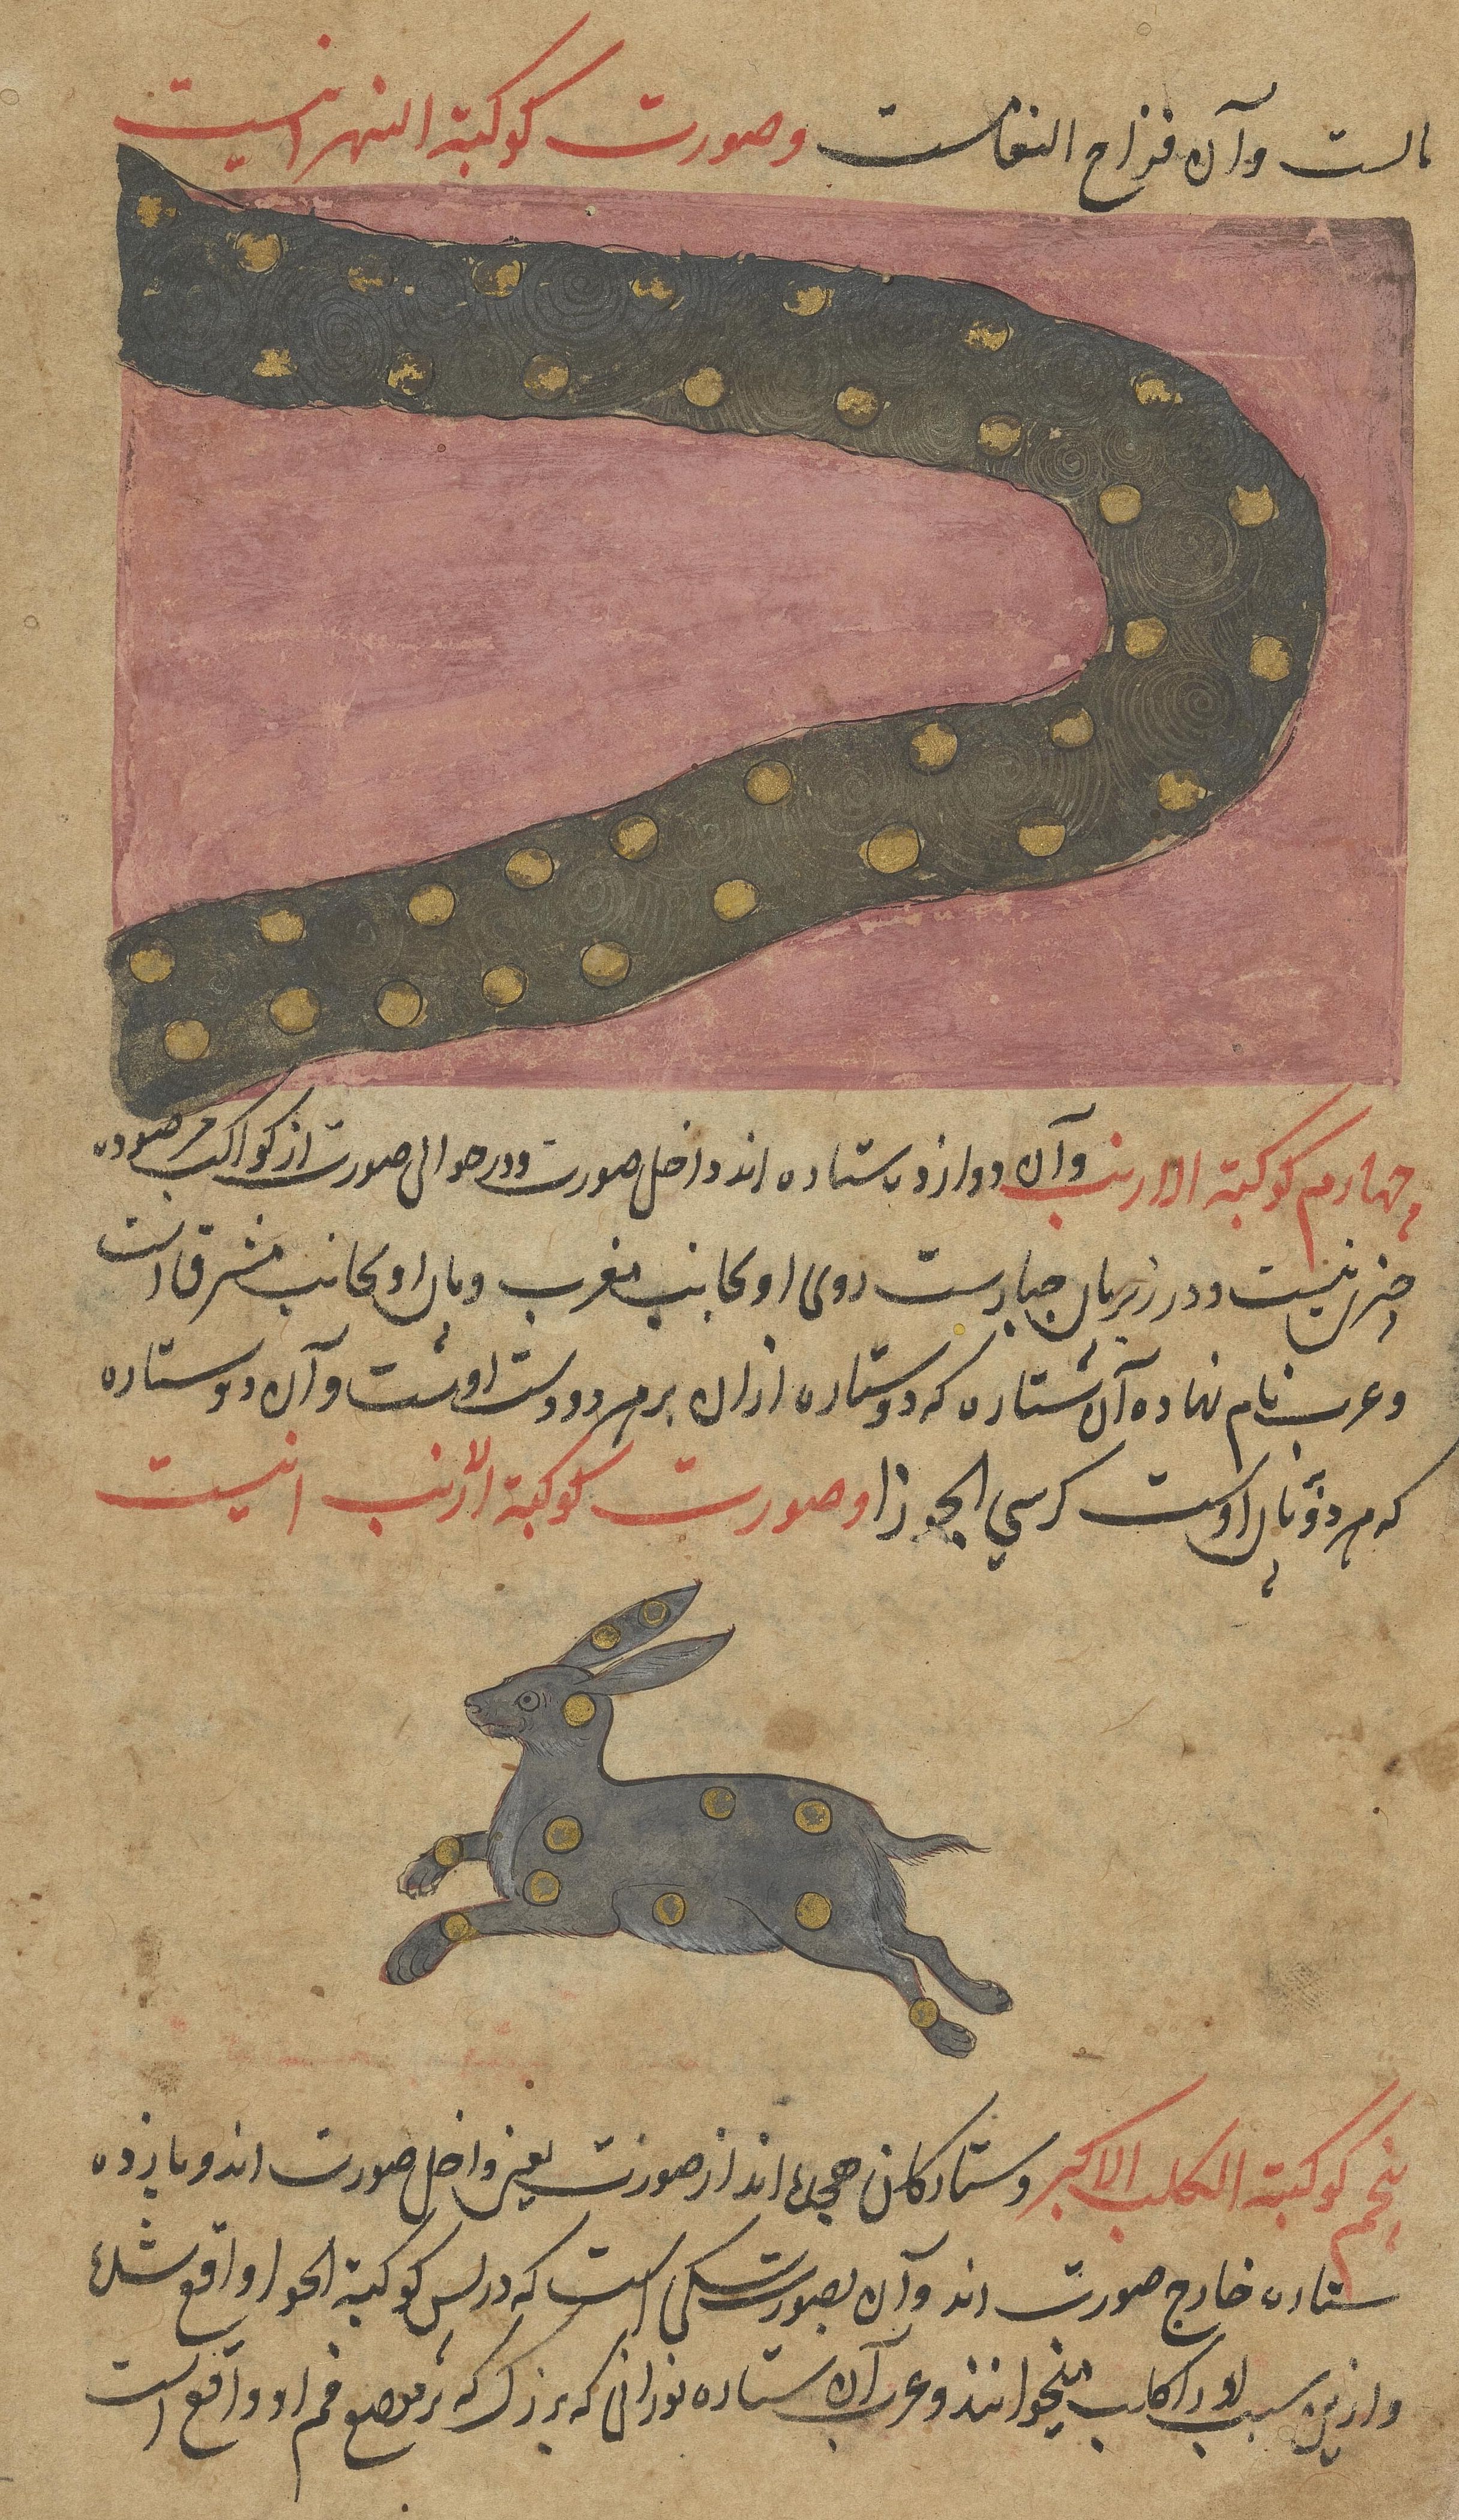 است و آن فراخ النعامست وصورت کوکبة النهر اینست
چهارم کوکبة الارنب وآن دوازده ستاره اند داخل صورت ودر حوالی صورت از کواکب مرصوده
چیزی نیست ودر زیر پای جبارست روی او بجانب مغرب وپای او بجانب مشرق است
وعرب نام نهاده آن ستاره که دو ستاره ازان بر هر دو دست اوست وآن دو ستاره
که بر هر دو پای اوست کرسي الجوزا وصورت کوکبة الأرنب اینست
پنجم کوکبة الکلب الاکبر وستارکان هجده اند از صورت یعنی داخل صورت اند ویازده
ستاره خارج صورت اند وآن بصورت سکی است که در پس کوکبة الجوزا واقع شده
وازین سبب او را کلب میخوانند وعرب آن ستاره نورانی که بزرک که بر موضع فم او واقع است